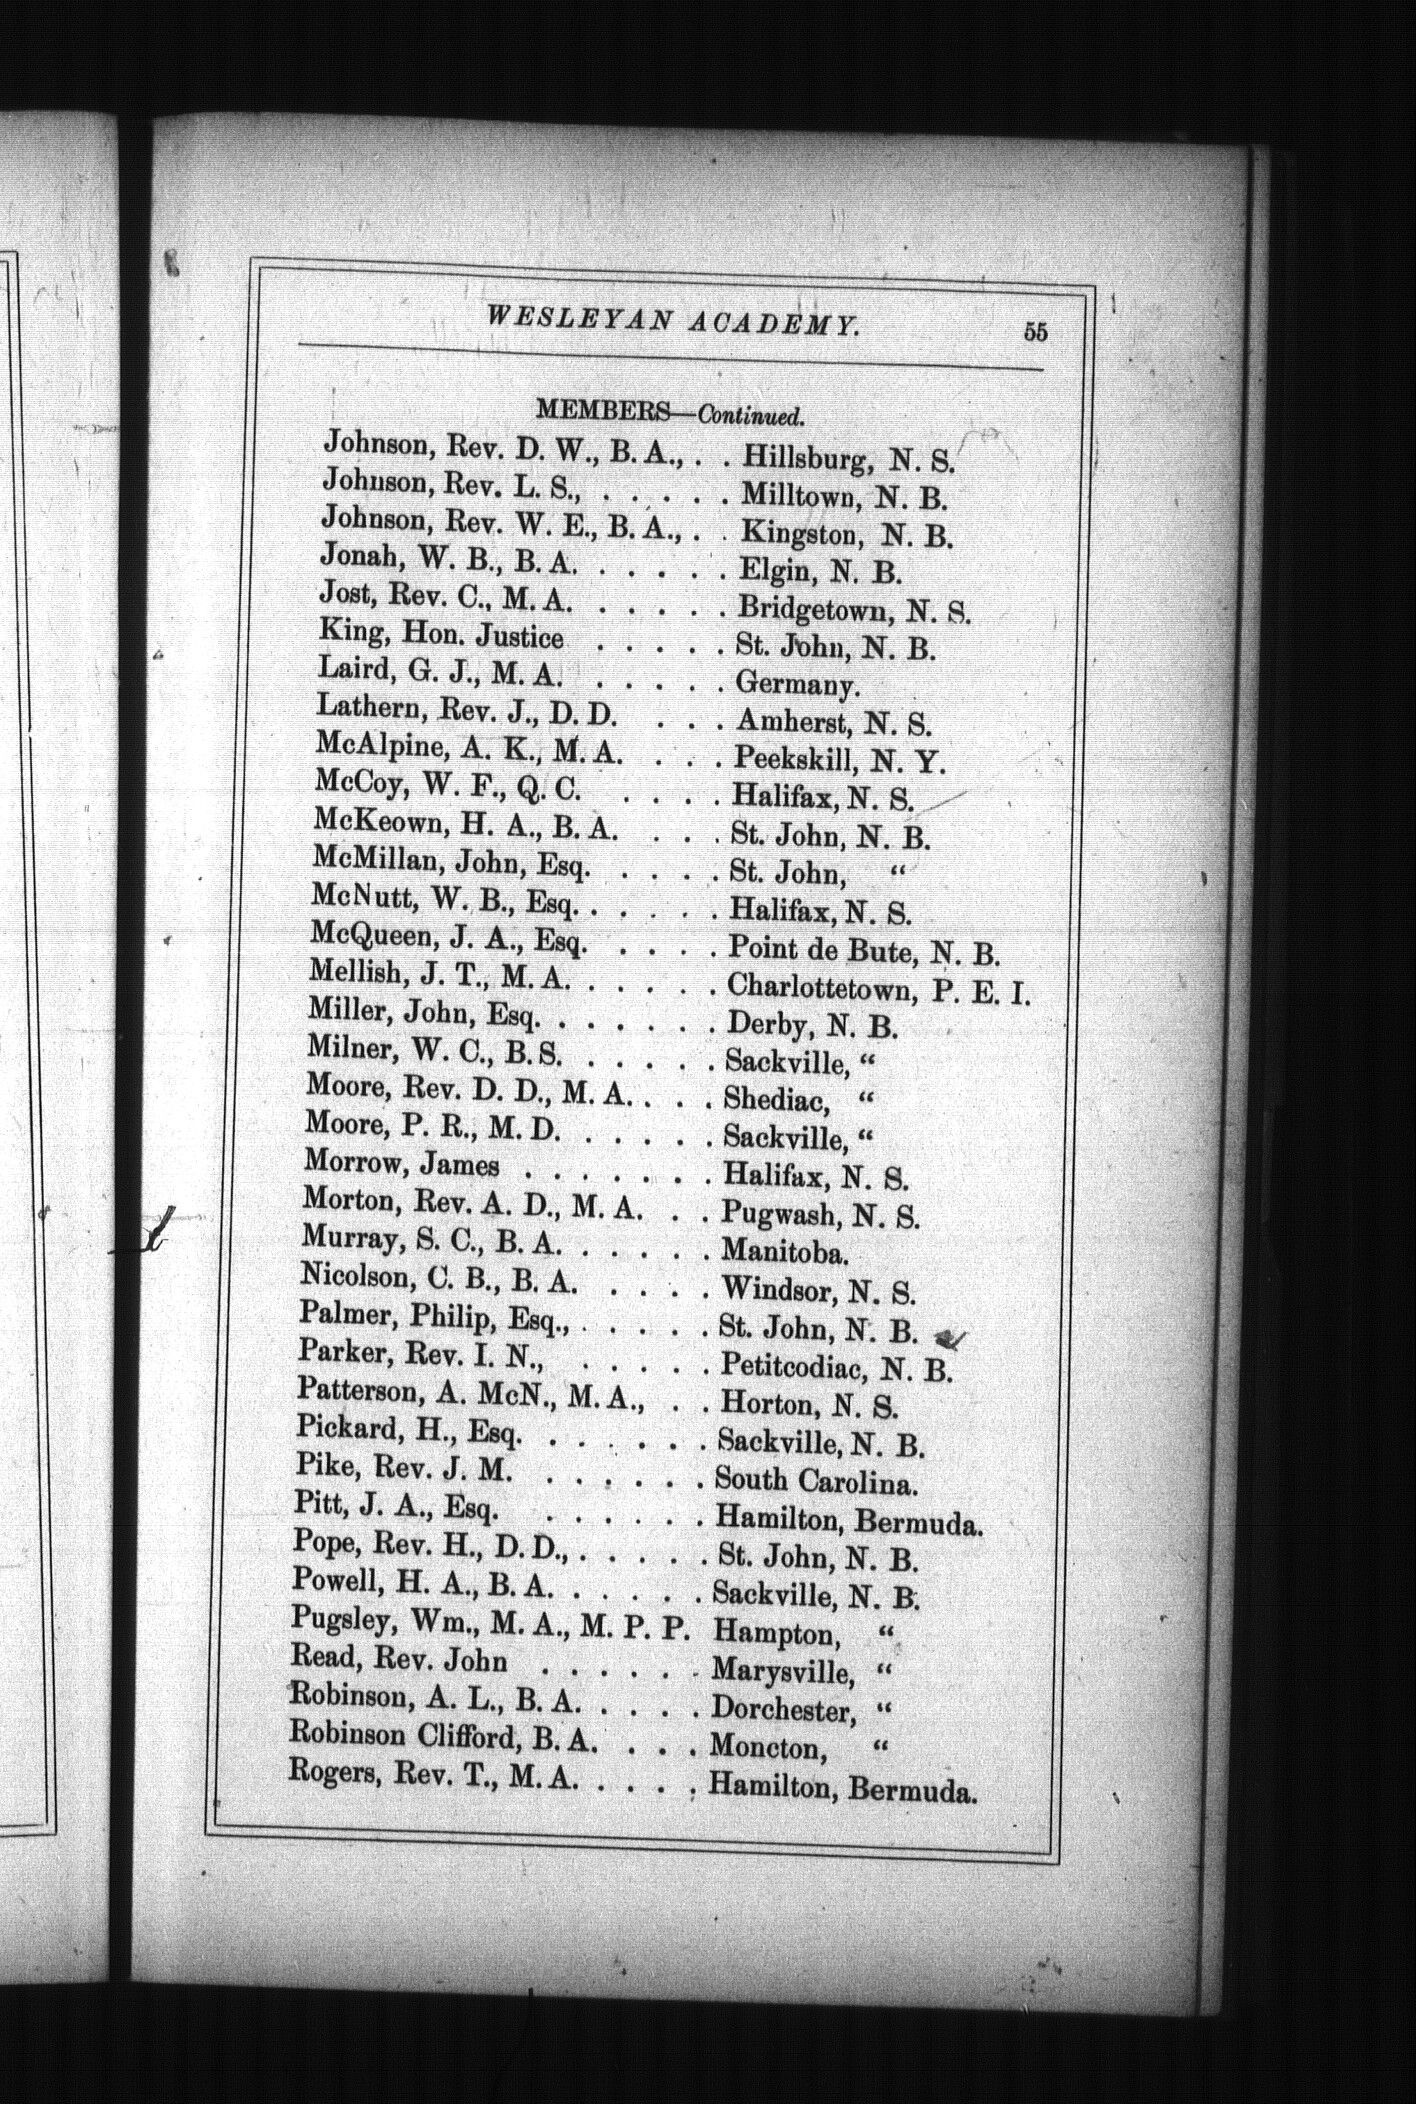 WESLEYAN ACADEMY. 55
MEMBERS—Continued.
Johnson, Rev. D. W., B. A., . . Hillsburg, N. S.
Johnson, Rev. L. S., . . . . . Milltown, N. B.
Johnson, Rev. W. E., B. A., . . Kingston, N. B.
Jonah, W. B., B. A. . . . . . Elgin, N. B.
Jost, Rev. C., M. A. . . . . . Bridgetown, N. S.
King, Hon. Justice . . . . . St. John, N. B.
Laird, G. J., M. A. . . . . . Germany.
Lathern, Rev. J., D. D. . . . Amherst, N. S.
McAlpine, A. K., M. A. . . . Peekskill, N. Y.
McCoy, W. F., Q. C. . . . . Halifax, N. S.
McKeown, H. A., B. A. . . . St. John, N. B.
McMillan, John, Esq. . . . . St. John, “
McNutt, W. B., Esq. . . . . . Halifax, N. S.
McQueen, J. A., Esq. . . . . Point de Bute, N. B.
Mellish, J. T., M. A. . . . . . Charlottetown, P. E. I.
Miller, John, Esq. . . . . . . Derby, N. B.
Milner, W. C., B. S. . . . . . Sackville, “
Moore, Rev. D. D., M. A. . . . Shediac, “
Moore, P. R., M. D. . . . . . Sackville, “
Morrow, James . . . . . . . Halifax, N. S.
Morton, Rev. A. D., M. A. . . Pugwash, N. S.
Murray, S. C., B. A. . . . . . Manitoba.
Nicolson, C. B., B. A. . . . . Windsor, N. S.
Palmer, Philip, Esq., . . . . . St. John, N. B.
Parker, Rev. I. N., . . . . . Petitcodiac, N. B.
Patterson, A. McN., M. A., . . Horton, N. S.
Pickard, H., Esq. . . . . . . Sackville, N. B.
Pike, Rev. J. M. . . . . . . South Carolina.
Pitt, J. A., Esq. . . . . . . Hamilton, Bermuda.
Pope, Rev. H., D. D., . . . . . St. John, N. B.
Powell, H. A., B. A. . . . . . Sackville, N. B.
Pugsley, Wm., M. A., M. P. P. Hampton, “
Read, Rev. John . . . . . . Marysville, “
Robinson, A. L., B. A. . . . . Dorchester, “
Robinson Clifford, B. A. . . . Moncton, “
Rogers, Rev. T., M. A. . . . . Hamilton, Bermuda.